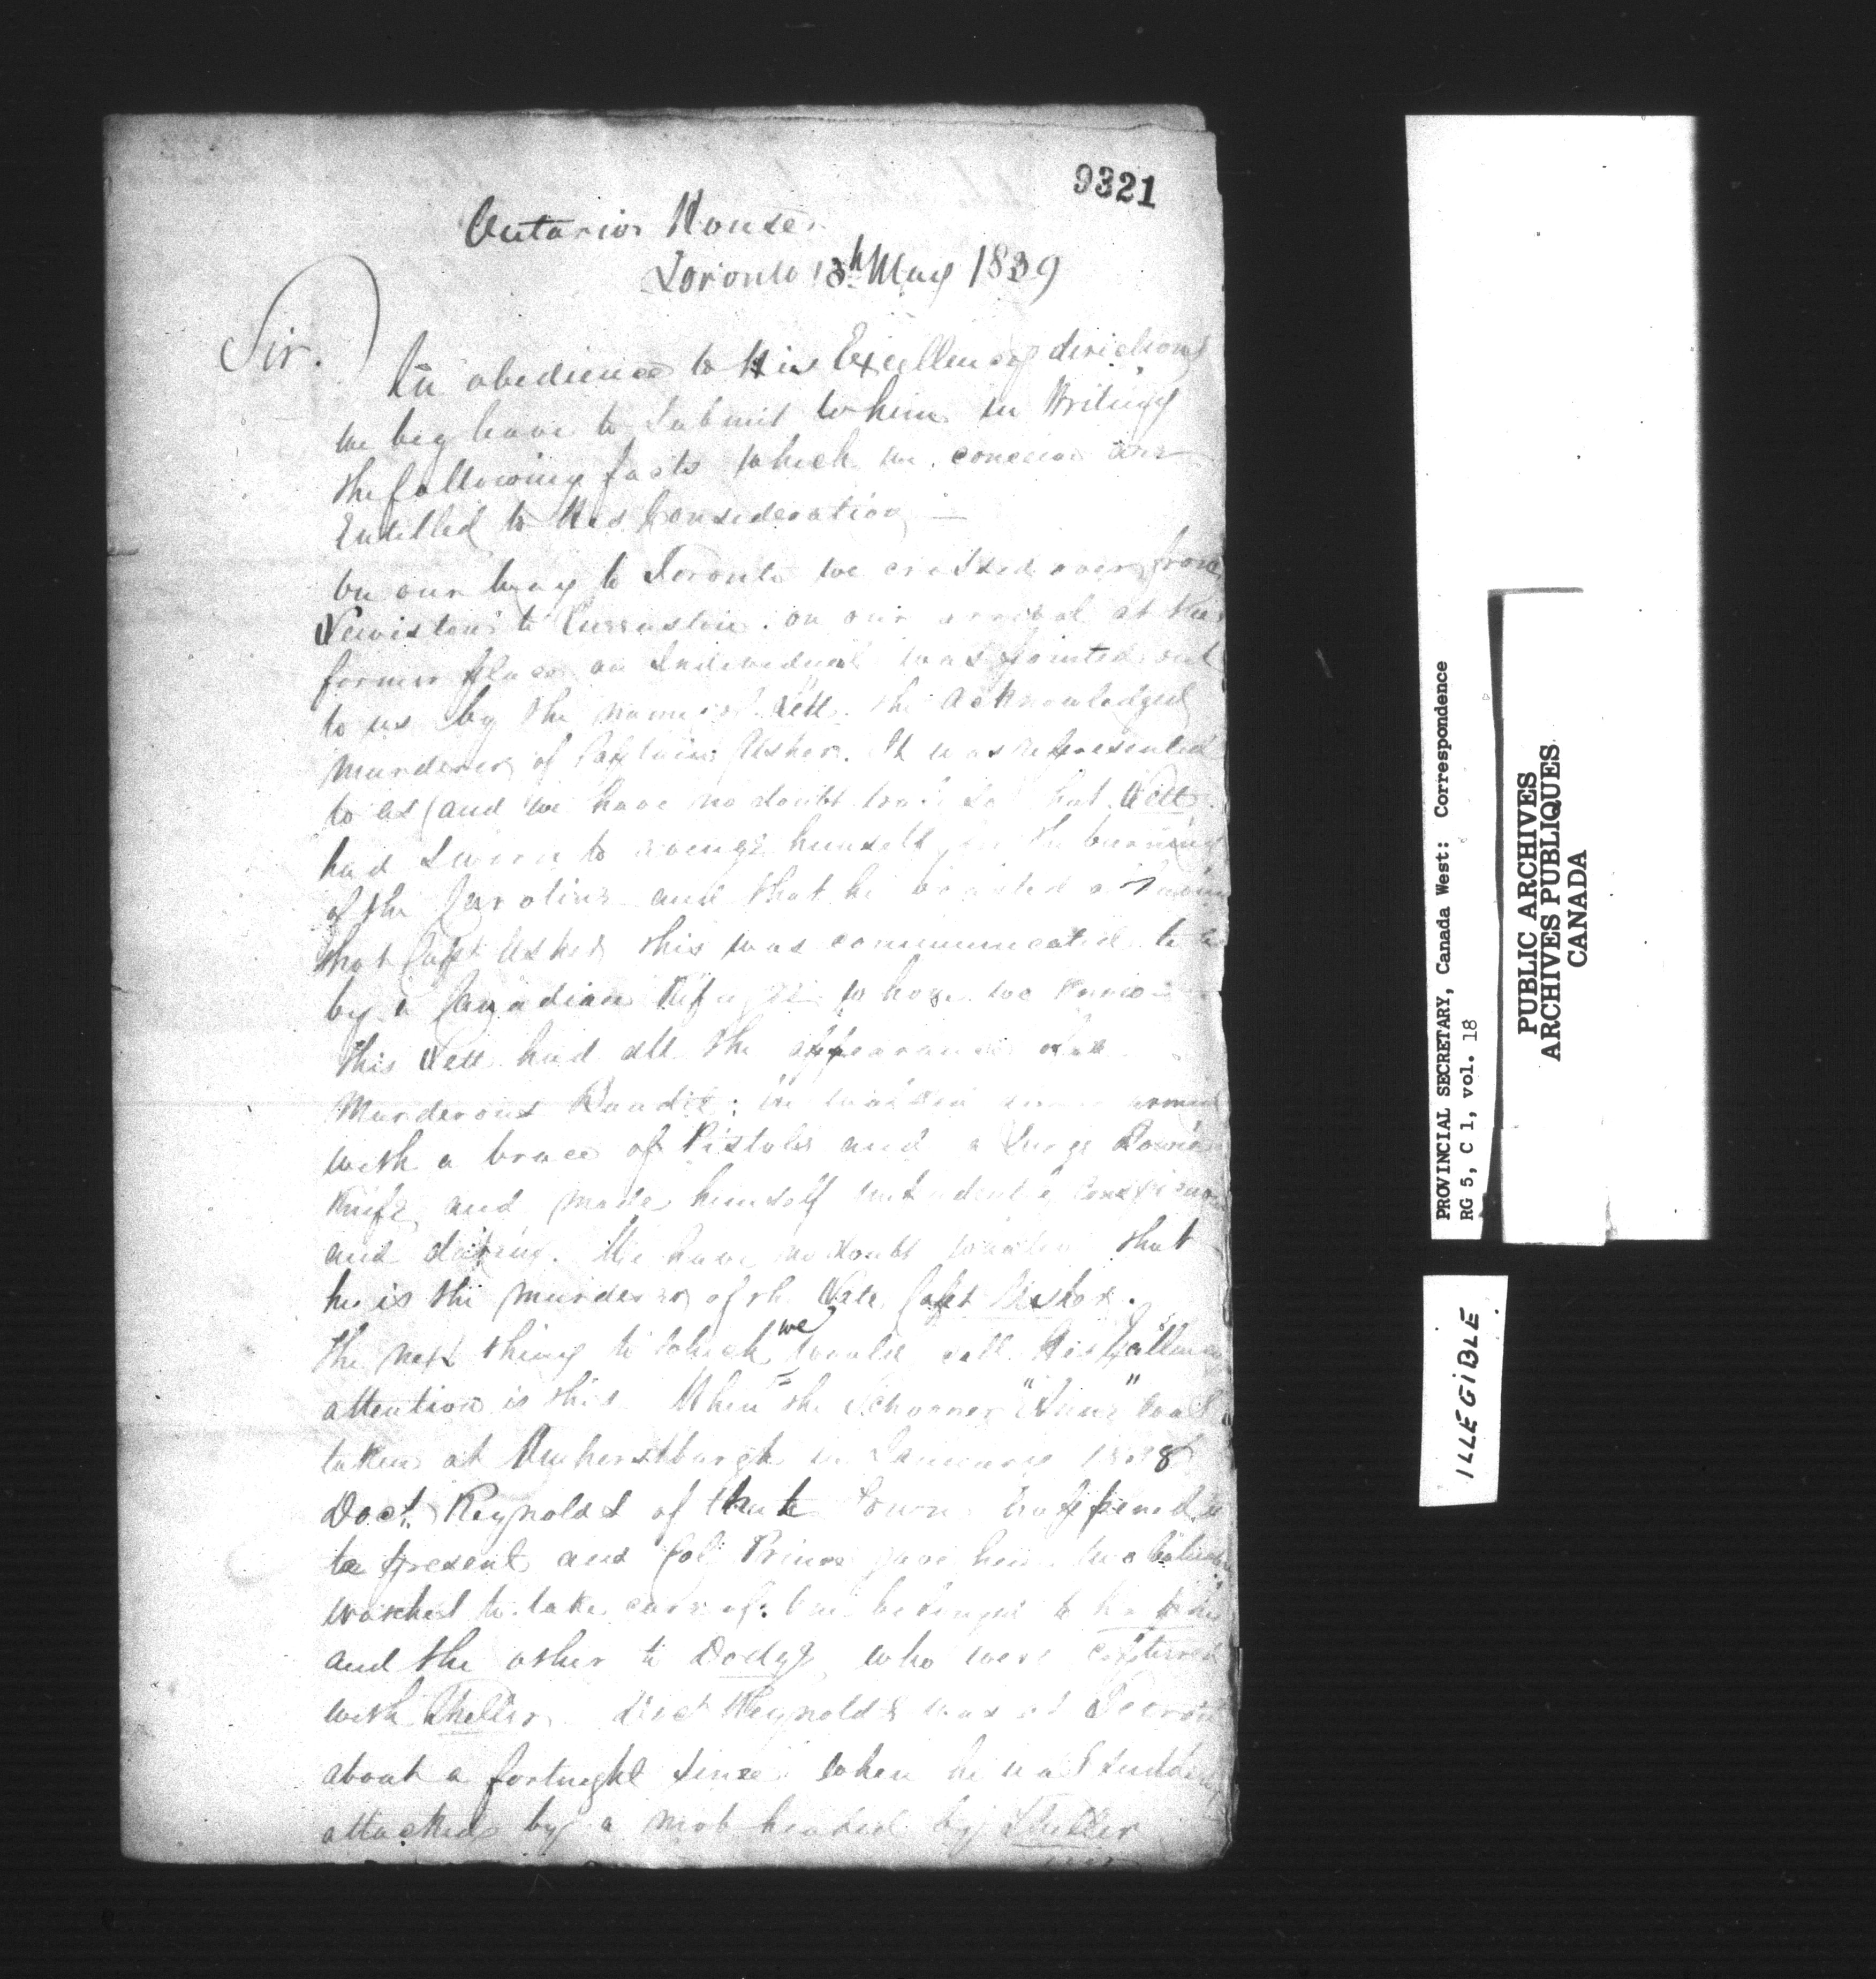 9321
Ontario House
Toronto 13th May 1839
Sir.
In obedience to His Excellencys directions
we beg leave to submit to him in Writing
the following facts which we conceive are
Entitled to His Consideration —
On our way to Toronto we crossed over from
Lewiston to Queenston. on our arrival at the
former place an Individual was pointed out
to us by the name of Lett. the acknowledged
Murderer of Captain Usher. It was represented
to us (and we have no doubt truly so) that Lett
had sworn to avenge himself for the burning
of the Caroline and that he boasted of having
shot Capt Usher this was communicated to us
by a Canadian Refugee whom we know —
This Lett had all the appearance of a
Murderous Bandit: he armed
with a brace of Pistols and a large Bowie
Knife and made himself conspicuous
and daring. We have no doubt that
he is the murderer of the late Capt Usher.
The next thing to which we would call His Excellencys
attention is this. When the Schooner "Anne" was
taken at Amherstburgh in January 1838
Doct. Reynolds of that Town happened
to present and Col. Prince gave him two
watches to take care of. One belonged to
and the other to Dodge who were captured
with Theller. Doct Reynolds was at Detroit
about a fortnight since when he was suddenly
attacked by a mob headed by Theller
PROVINCIAL SECRETARY, Canada West: Correspondence
RG 5, C 1, vol. 18
PUBLIC ARCHIVES
ARCHIVES PUBLIQUES
CANADA
ILLEGIBLE